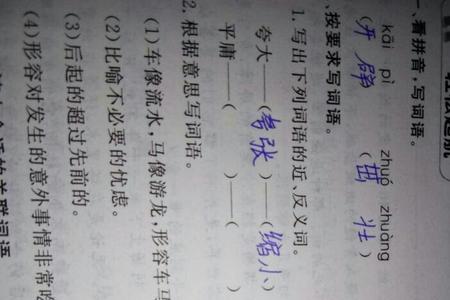 一、看拼音,写词语。
kāi pì zhuó zhuàng
(开辟) (茁壮)
、按要求写词语。
1. 写出下列词语的近、反义词。
夸大——(夸张)——(缩小)
平庸——( )——( )
2. 根据意思写词语。
(1)车像流水,马像游龙,形容车马
(2)比喻不必要的忧虑。
(3)后起的超过先前的。
(4)形容对发生的意外事情非常
的关联词语